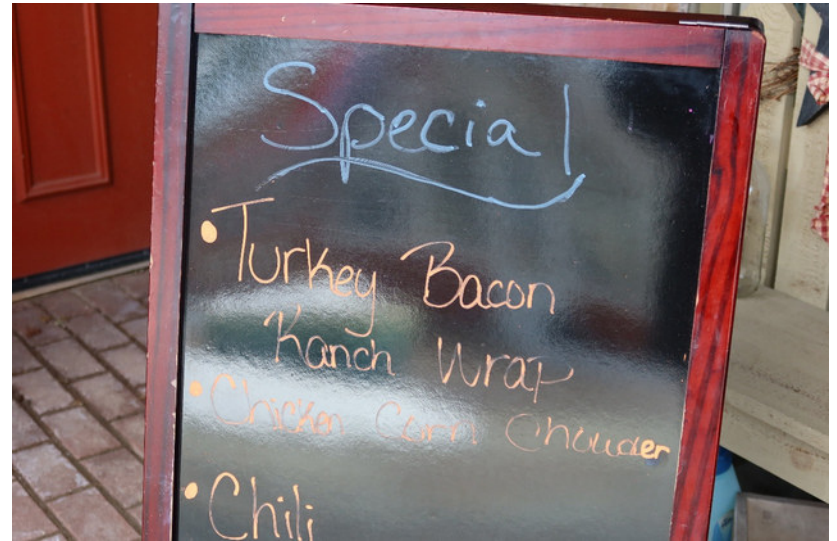 Special
• Turkey Bacon
Ranch Wrap
• Chicken Corn Chowder
• Chili